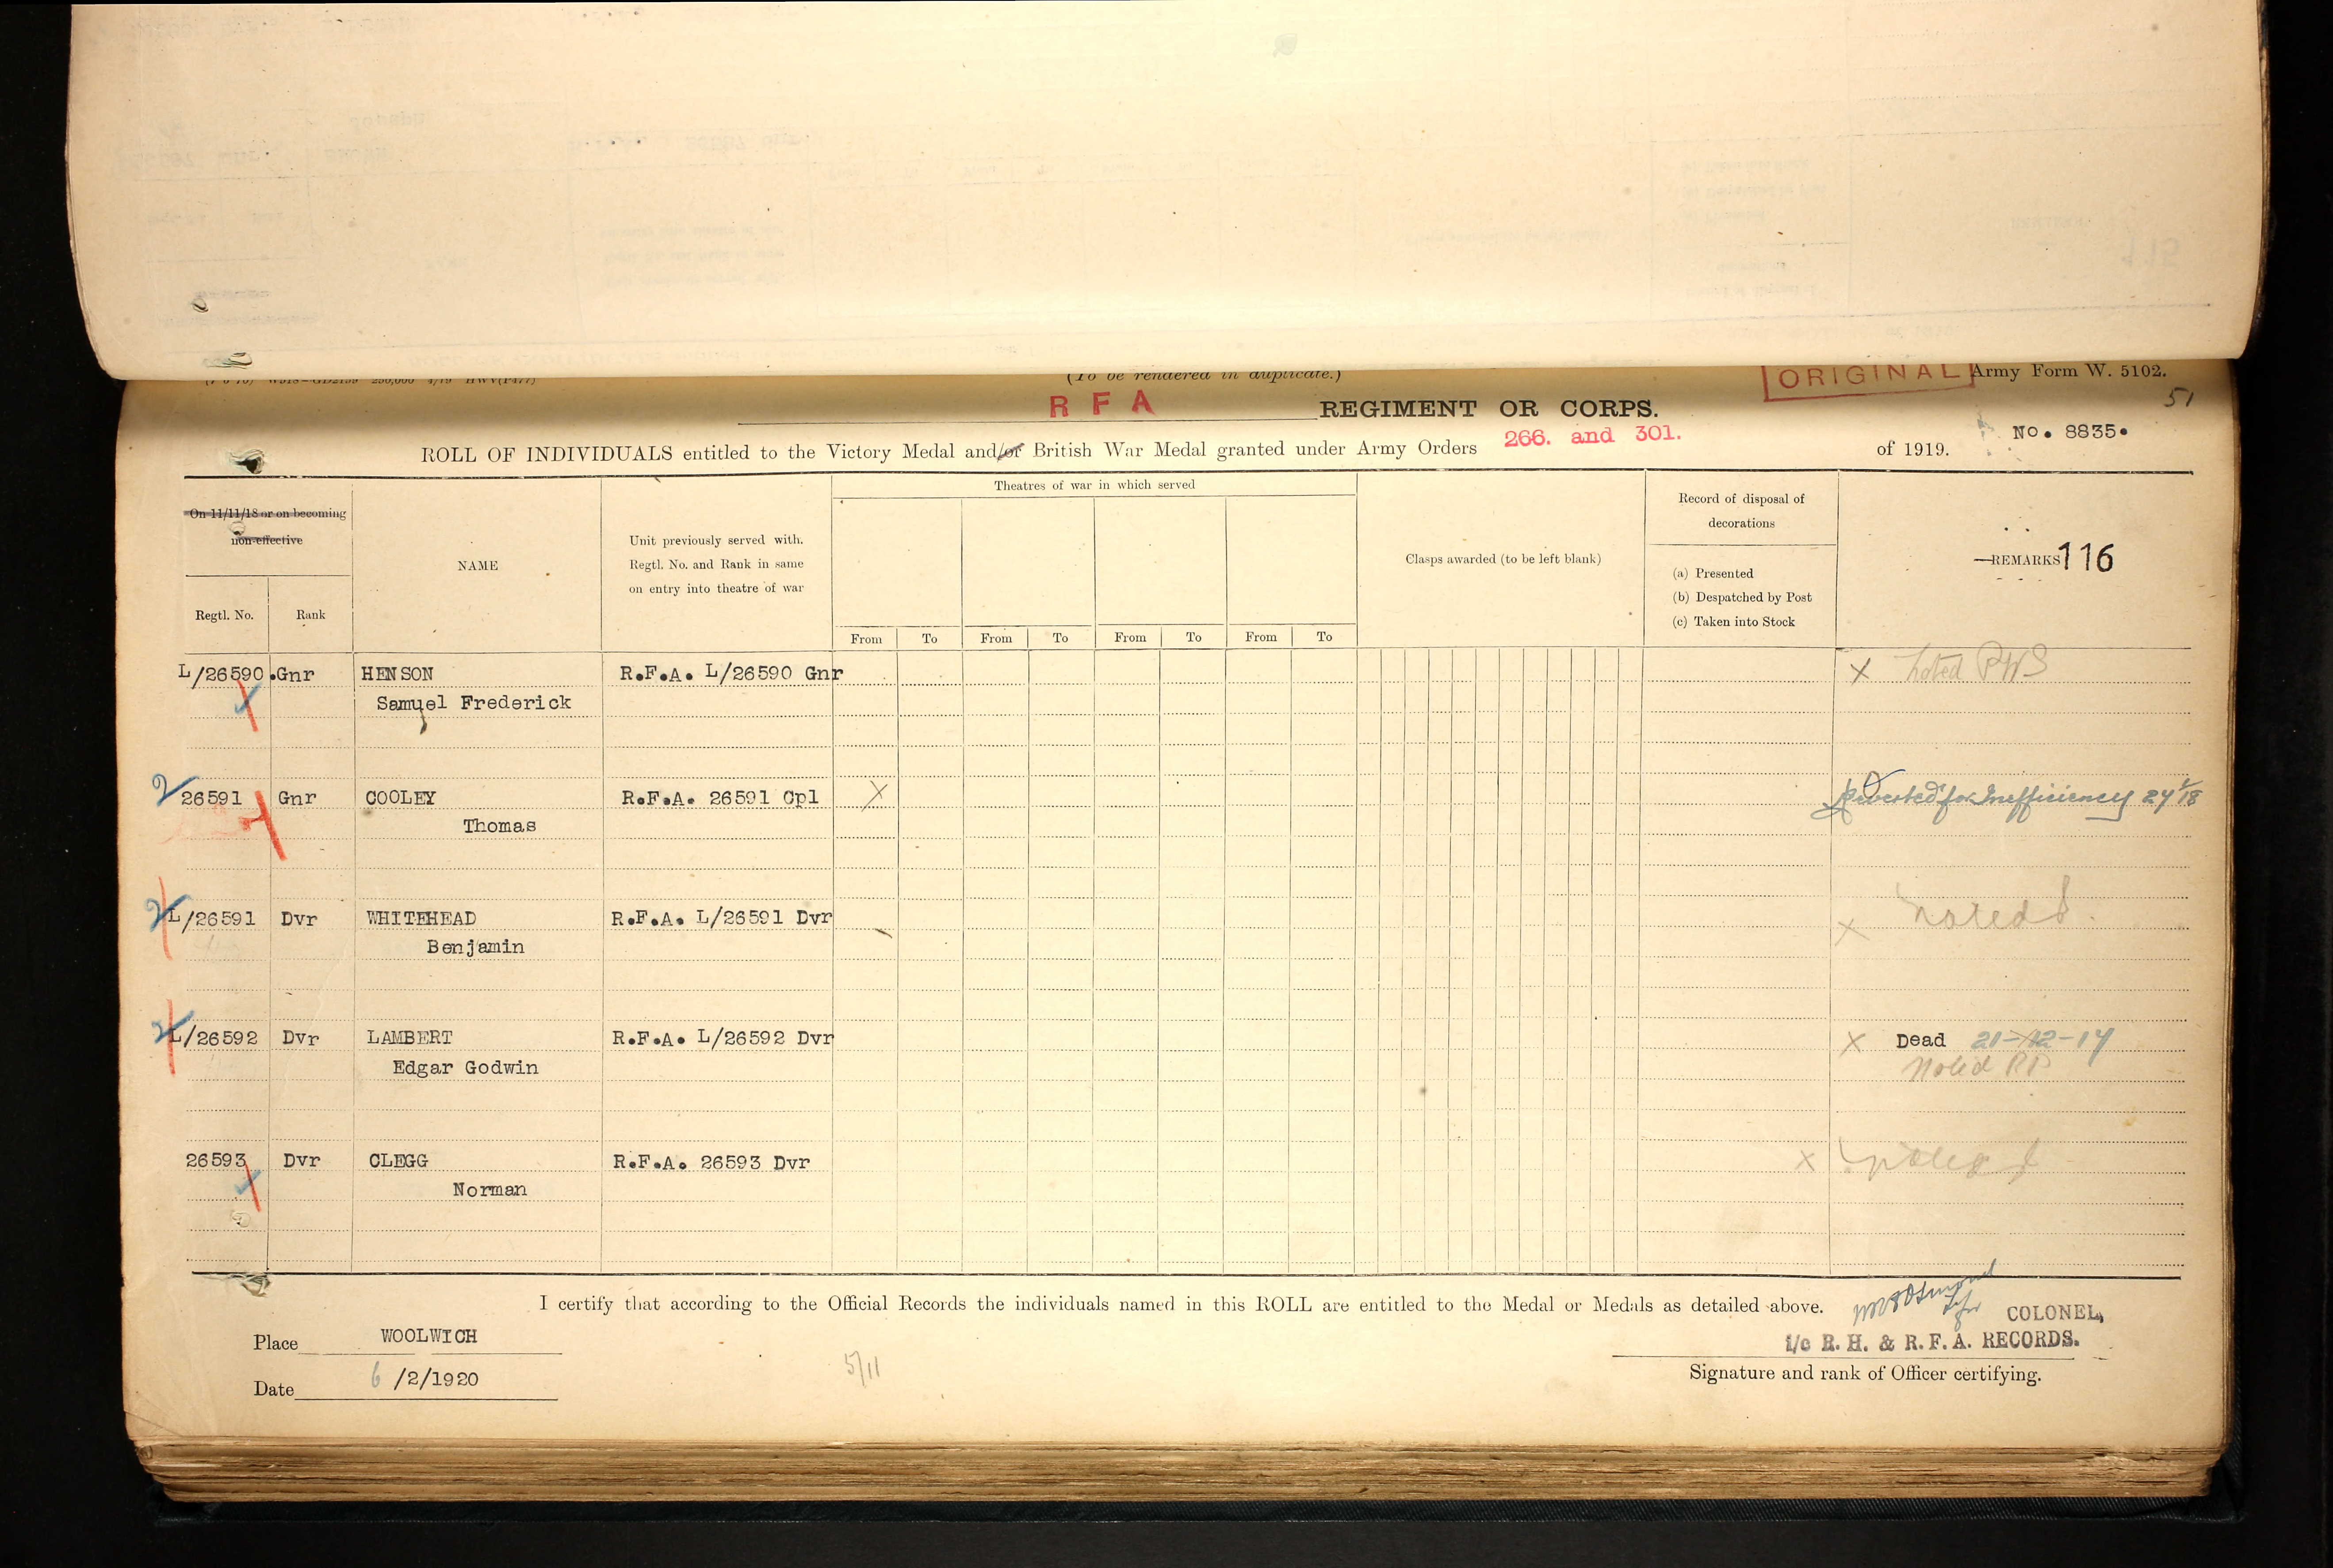 (To be rendered in duplicate.)
ORIGINAL
Army Form W. 5102.
51
R F A REGIMENT OR CORPS.
No. 8835.
ROLL OF INDIVIDUALS entitled to the Victory Medal and/or British War Medal granted under Army Orders 266. and 301. of 1919.
On 11/11/18 or on becoming
non-effective
Regtl. No.
Rank
NAME
Unit previously served with.
Regtl. No. and Rank in same
on entry into theatre of war
Theatres of war in which served
From To From To From To From To
Clasps awarded (to be left blank)
Record of disposal of
decorations
(a) Presented
(b) Despatched by Post
(c) Taken into Stock
REMARKS 116
L/26590 Gnr HENSON R.F.A. L/26590 Gnr X noted
Samuel Frederick
2 26591 Gnr COOLEY R.F.A. 26591 Cpl X Reverted for Inefficiency
Thomas
2 L/26591 Dvr WHITEHEAD R.F.A. L/26591 Dvr X noted
Benjamin
2 L/26592 Dvr LAMBERT R.F.A. L/26592 Dvr X Dead 21-12-17
Edgar Godwin Noted
26593 Dvr CLEGG R.F.A. 26593 Dvr X
Norman
I certify that according to the Official Records the individuals named in this ROLL are entitled to the Medal or Medals as detailed above.
COLONEL,
i/c R. H. & R. F. A. RECORDS.
Signature and rank of Officer certifying.
Place WOOLWICH
Date 6/2/1920
5/11